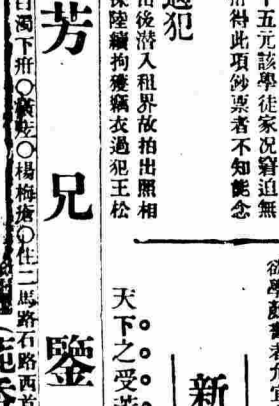 十五元該學徒家况窘迫無
得此項鈔票者不知能念
過犯
後潛入租界故拍出照相
陸續拘獲竊衣過犯王松
芳兄鑒
白濁下疳〇橫痃〇楊梅瘡〇住二馬路石路西首
天下之受
新